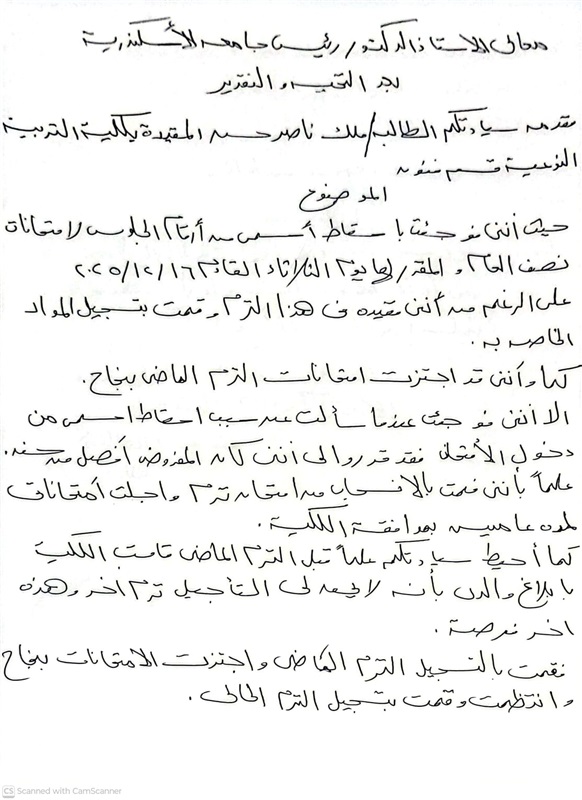 معالى الاستاذ الدكتور / رئيس جامعه الأسكندرية
بعد التحيه والتقدير
مقدمه سيادتكم الطالبه / ملك ناصر حسن المقيدة بكلية التربية
النوعية قسم فنون
الموضوع
حيث أننى فوجئت باسقاط أسمى من أرقام الجلوس لامتحانات
نصف العام والمقرر لها يوم الثلاثاء القادم ٢٠٢٥/١٢/١٦
على الرغم من أننى مقيده فى هذا الترم وقمت بتسجيل المواد
الخاصه به .
كما وأننى قد اجتزت امتحانات الترم الماضى بنجاح .
الا اننى فوجئت عندما سألت عن سبب اسقاط اسمى من
دخول الأمتحان فقد قرروا لى اننى كان المفروض أفصل من سنه .
علماً بأننى قمت بالانسحاب من امتحان ترم واجلت أمتحانات
لمده عامين بموافقة الكلية .
كما أحيط سيادتكم علماً قبل الترم الماضى قامت الكلية
بابلاغ والدى بأنه لايحق لى التأجيل ترم اخر وهذه
اخر فرصة .
فقمت بالتسجيل الترم الماضى واجتزت الامتحانات بنجاح
وانتظمت وقمت بتسجيل الترم الحالى .
CS Scanned with CamScanner